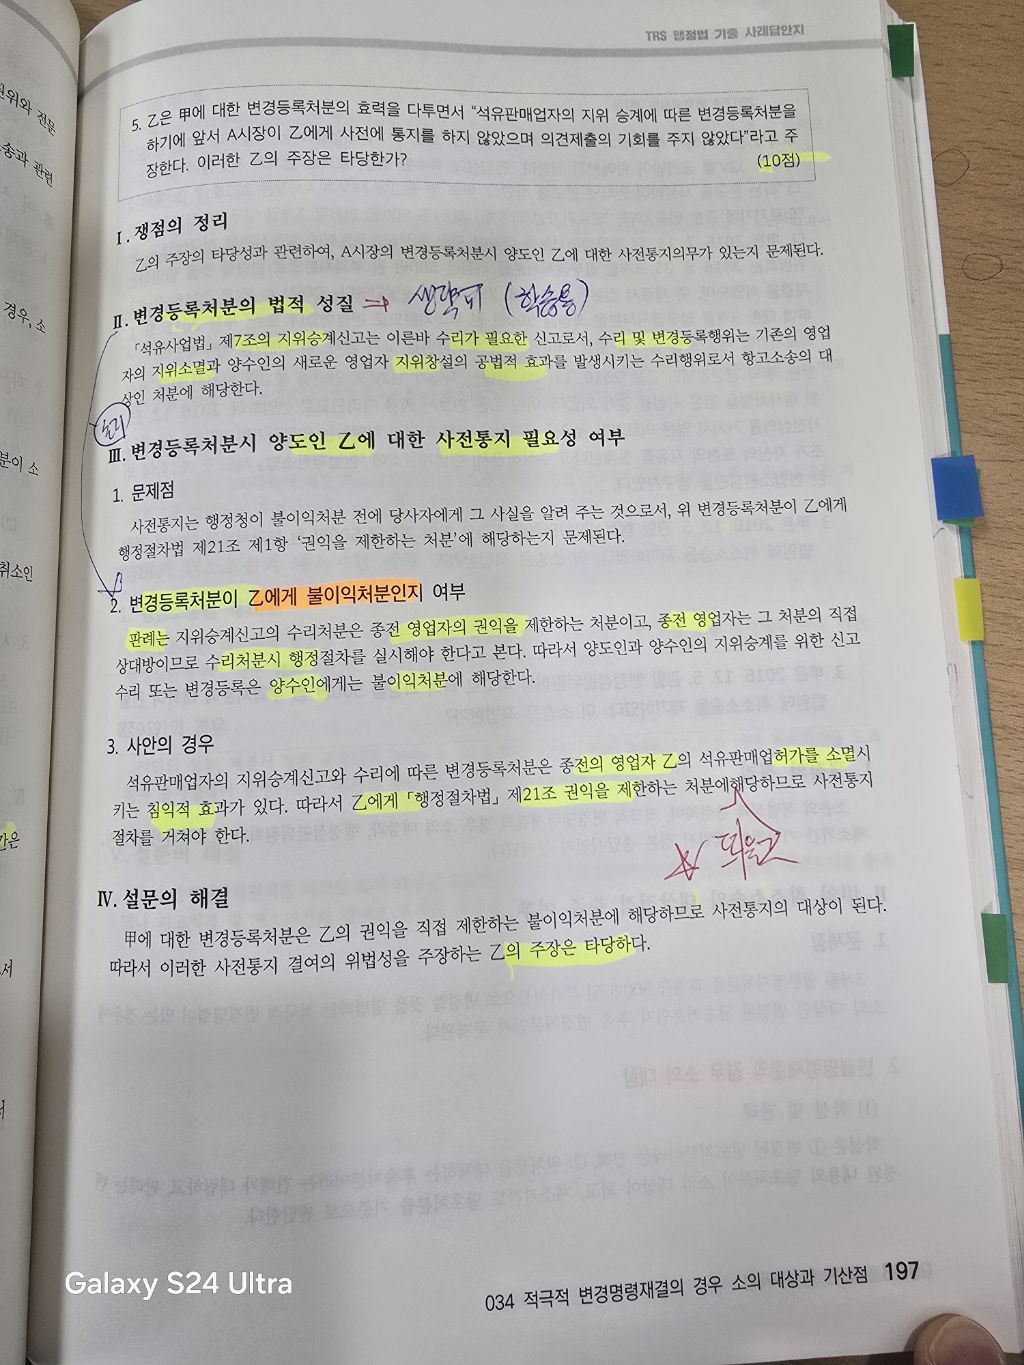 TRS 행정법 기출 사례답안지
원위와 전문
송과 관련
경우, 소
분이 소
취소인
5. 乙은 甲에 대한 변경등록처분의 효력을 다투면서 "석유판매업자의 지위 승계에 따른 변경등록처분을
하기에 앞서 A시장이 乙에게 사전에 통지를 하지 않았으며 의견제출의 기회를 주지 않았다"라고 주
장한다. 이러한 乙의 주장은 타당한가?
(10점)
Ⅰ. 쟁점의 정리
乙의 주장의 타당성과 관련하여, A시장의 변경등록처분시 양도인 乙에 대한 사전통지의무가 있는지 문제된다.
Ⅱ. 변경등록처분의 법적 성질 → 생략可 (학습용)
「석유사업법」 제7조의 지위승계신고는 이른바 수리가 필요한 신고로서, 수리 및 변경등록행위는 기존의 영업
자의 지위소멸과 양수인의 새로운 영업자 지위창설의 공법적 효과를 발생시키는 수리행위로서 항고소송의 대
상인 처분에 해당한다.
Ⅲ. 변경등록처분시 양도인 乙에 대한 사전통지 필요성 여부
1. 문제점
사전통지는 행정청이 불이익처분 전에 당사자에게 그 사실을 알려 주는 것으로서, 위 변경등록처분이 乙에게
행정절차법 제21조 제1항 '권익을 제한하는 처분'에 해당하는지 문제된다.
2. 변경등록처분이 乙에게 불이익처분인지 여부
판례는 지위승계신고의 수리처분은 종전 영업자의 권익을 제한하는 처분이고, 종전 영업자는 그 처분의 직접
상대방이므로 수리처분시 행정절차를 실시해야 한다고 본다. 따라서 양도인과 양수인의 지위승계를 위한 신고
수리 또는 변경등록은 양수인에게는 불이익처분에 해당한다.
3. 사안의 경우
석유판매업자의 지위승계신고와 수리에 따른 변경등록처분은 종전의 영업자 乙의 석유판매업허가를 소멸시
키는 침익적 효과가 있다. 따라서 乙에게 「행정절차법」 제21조 권익을 제한하는 처분에해당하므로 사전통지
절차를 거쳐야 한다.
띄울것
Ⅳ. 설문의 해결
甲에 대한 변경등록처분은 乙의 권익을 직접 제한하는 불이익처분에 해당하므로 사전통지의 대상이 된다.
따라서 이러한 사전통지 결여의 위법성을 주장하는 乙의 주장은 타당하다.
034 적극적 변경명령재결의 경우 소의 대상과 기산점 197
Galaxy S24 Ultra